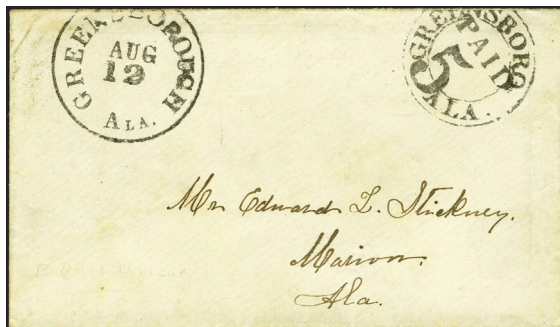 GREENSBOROUGH
AUG
12
ALA.
GREENSBORO
PAID
5
ALA.
Mr Edward L. Stickney.
Marion.
Ala.